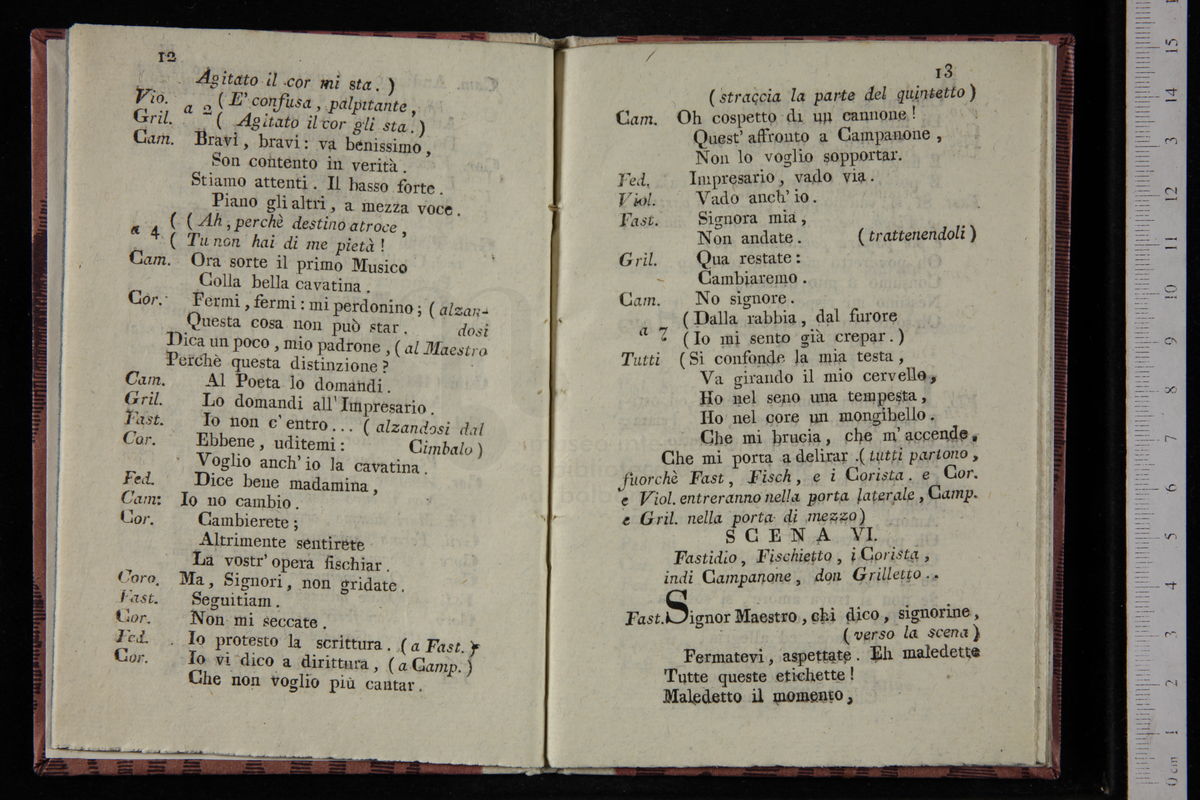 12
Agitato il cor mi sta. )
Vio. a 2 ( E' confusa, palpitante,
Gril. ( Agitato il cor gli sta. )
Cam. Bravi, bravi: va benissimo,
Son contento in verità.
Stiamo attenti. Il basso forte.
Piano gli altri, a mezza voce.
a 4 ( ( Ah, perchè destino atroce,
( Tu non hai di me pietà!
Cam. Ora sorte il primo Musico
Colla bella cavatina.
Cor. Fermi, fermi: mi perdonino; ( alzan-
Questa cosa non può star. dosi
Dica un poco, mio padrone, ( al Maestro
Perchè questa distinzione?
Cam. Al Poeta lo domandi.
Gril. Lo domandi all' Impresario.
Fast. Io non c' entro... ( alzandosi dal
Cor. Ebbene, uditemi: Cimbalo )
Voglio anch' io la cavatina.
Fed. Dice bene madamina,
Cam: Io no cambio.
Cor. Cambierete;
Altrimente sentirete
La vostr' opera fischiar.
Coro. Ma, Signori, non gridate.
Fast. Seguitiam.
Cor. Non mi seccate.
Fed. Io protesto la scrittura. ( a Fast. )
Cor. Io vi dico a dirittura, ( a Camp. )
Che non voglio più cantar.
13
( straccia la parte del quintetto )
Cam. Oh cospetto di un cannone!
Quest' affronto a Campanone,
Non lo voglio sopportar.
Fed. Impresario, vado via.
Viol. Vado anch' io.
Fast. Signora mia,
Non andate. ( trattenendoli )
Gril. Qua restate:
Cambiaremo.
Cam. No signore.
( Dalla rabbia, dal furore
a 7 ( Io mi sento già crepar. )
Tutti ( Si confonde la mia testa,
Va girando il mio cervello,
Ho nel seno una tempesta,
Ho nel core un mongibello.
Che mi brucia, che m' accende,
Che mi porta a delirar .( tutti partono,
fuorchè Fast, Fisch, e i Corista. e Cor.
e Viol. entreranno nella porta laterale, Camp.
e Gril. nella porta di mezzo )
SCENA VI.
Fastidio, Fischietto, i Corista,
indi Campanone, don Grilletto..
Fast. Signor Maestro, chi dico, signorine,
( verso la scena )
Fermatevi, aspettate. Eh maledette
Tutte queste etichette!
Maledetto il momento,